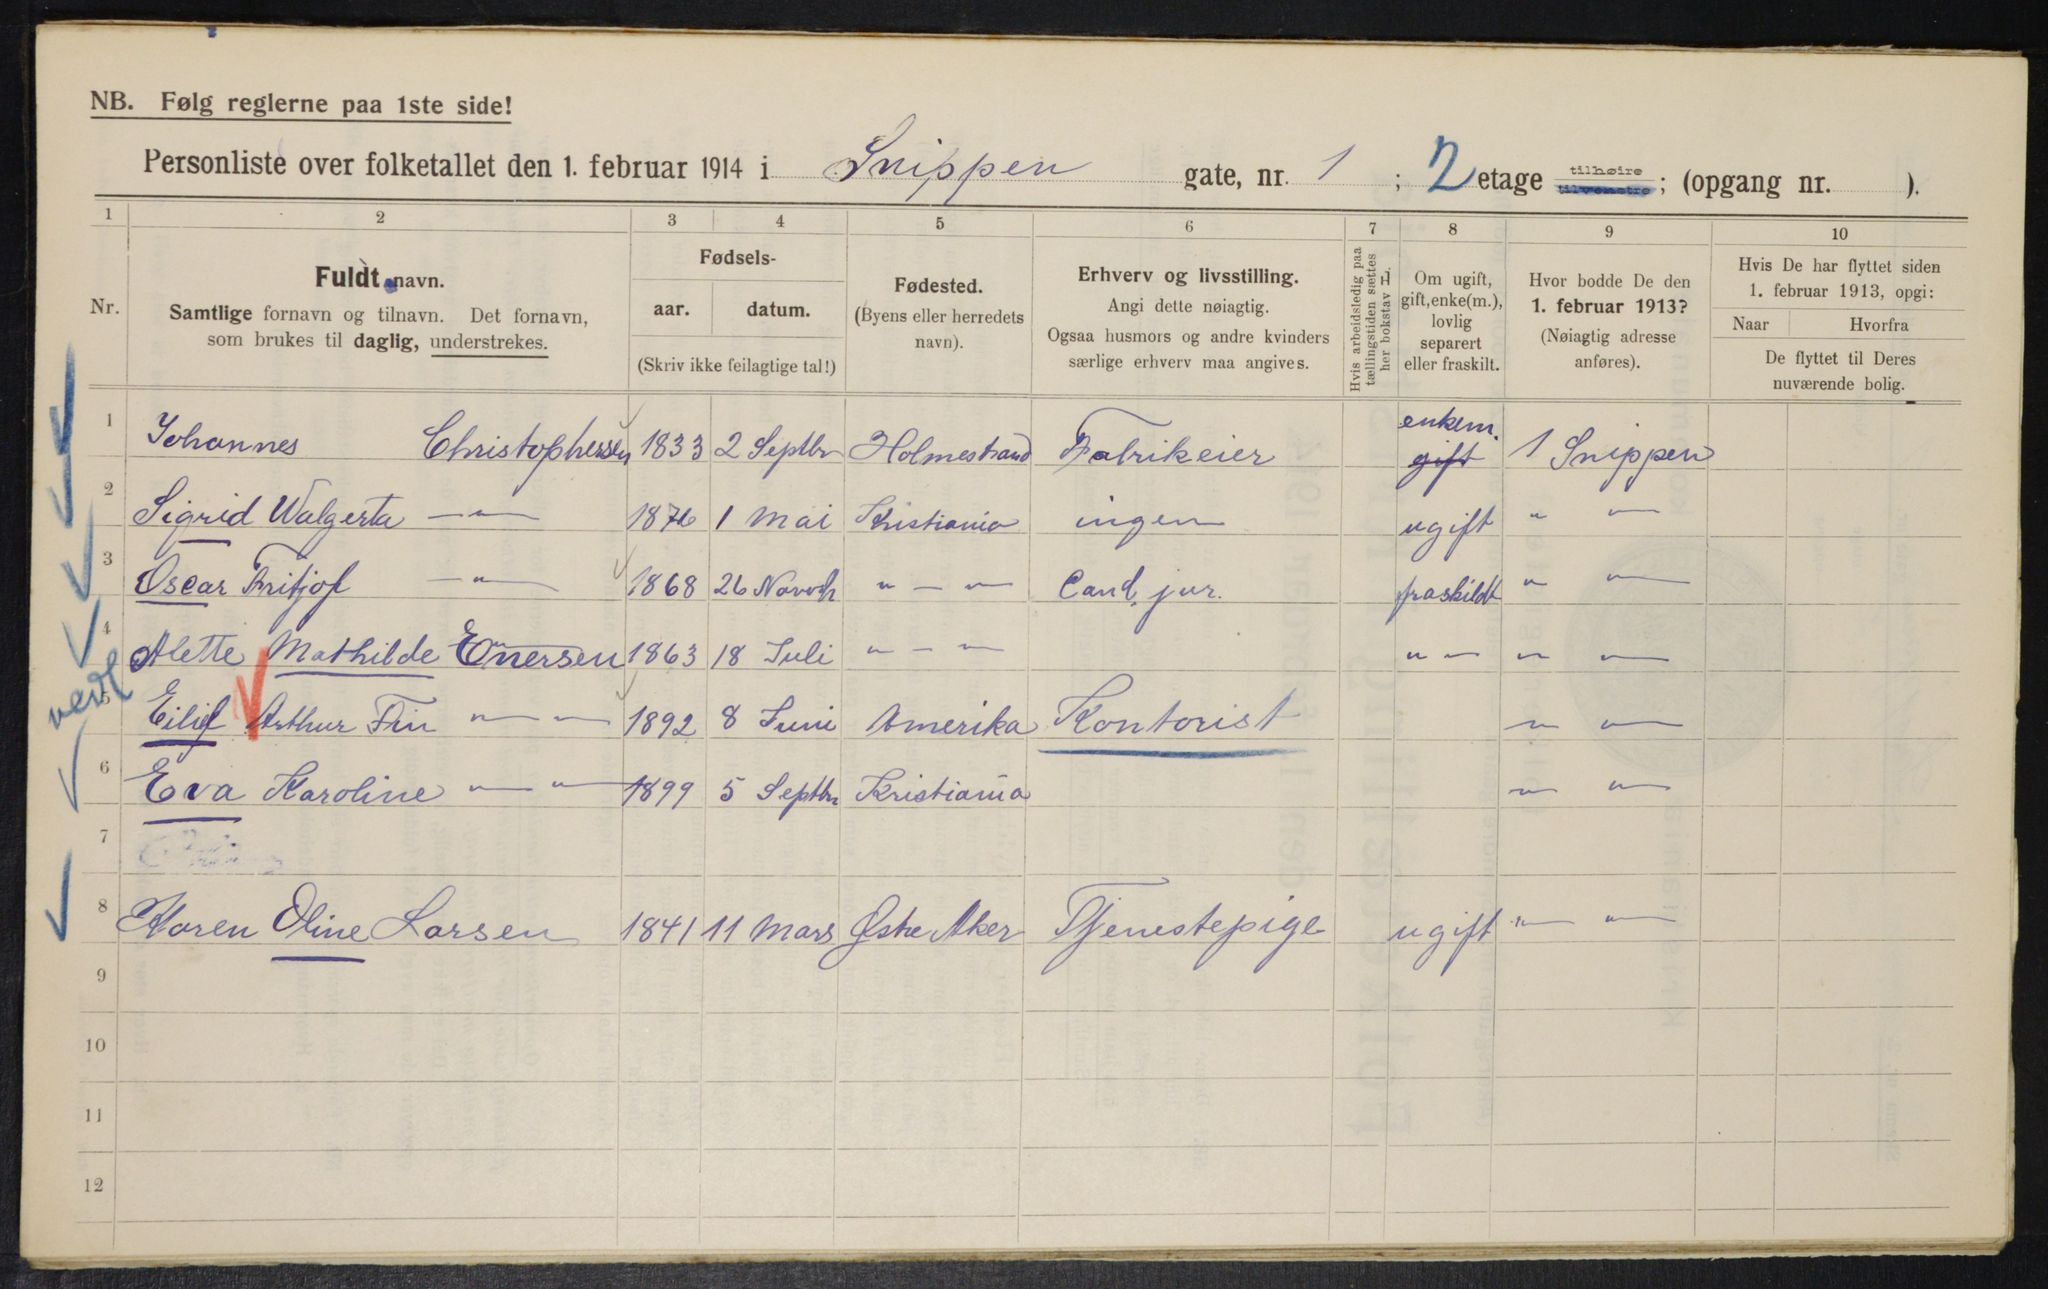 NB. Følg reglerne paa 1ste side!
Personliste over folketallet den 1. februar 1914 i Snippen gate, nr. 1 ; 2 etage tilhøire tilvenstre ; (opgang nr. ).
1 2 3 4 5 6 7 8 9 10
Nr.
Fuldt navn.
Samtlige fornavn og tilnavn. Det fornavn,
som brukes til daglig, understrekes.
Fødsels-
aar. datum.
(Skriv ikke feilagtige tal!)
Fødested.
(Byens eller herredets
navn).
Erhverv og livsstilling.
Angi dette nøiagtig.
Ogsaa husmors og andre kvinders
særlige erhverv maa angives.
Hvis arbeidsledig paa
tællingstiden sættes
her bokstav L.
Om ugift,
gift, enke(m.),
lovlig
separert
eller fraskilt.
Hvor bodde De den
1. februar 1913?
(Nøiagtig adresse
anføres).
Hvis De har flyttet siden
1. februar 1913, opgi:
Naar Hvorfra
De flyttet til Deres
nuværende bolig.
1 Johannes Christophersen 1833 2 Septbr Holmestrand Fabrikeier enkem. gift 1 Snippen
2 Sigrid Walgerta —"— 1876 1 Mai Kristiania ingen ugift " "
3 Oscar Fritjof —"— 1868 26 Novbr " — " Cand. jur. fraskildt " "
4 Alette Mathilde Enersen 1863 18 Juli " — " " — " "
5 Eilif Arthur Fin " — " 1892 8 Juni Amerika Kontorist " "
6 Eva Karoline " — " 1899 5 Septbr Kristiania " "
7
8 Karen Oline Larsen 1841 11 Mars Østre Aker Tjenestepige ugift " "
9
10
11
12